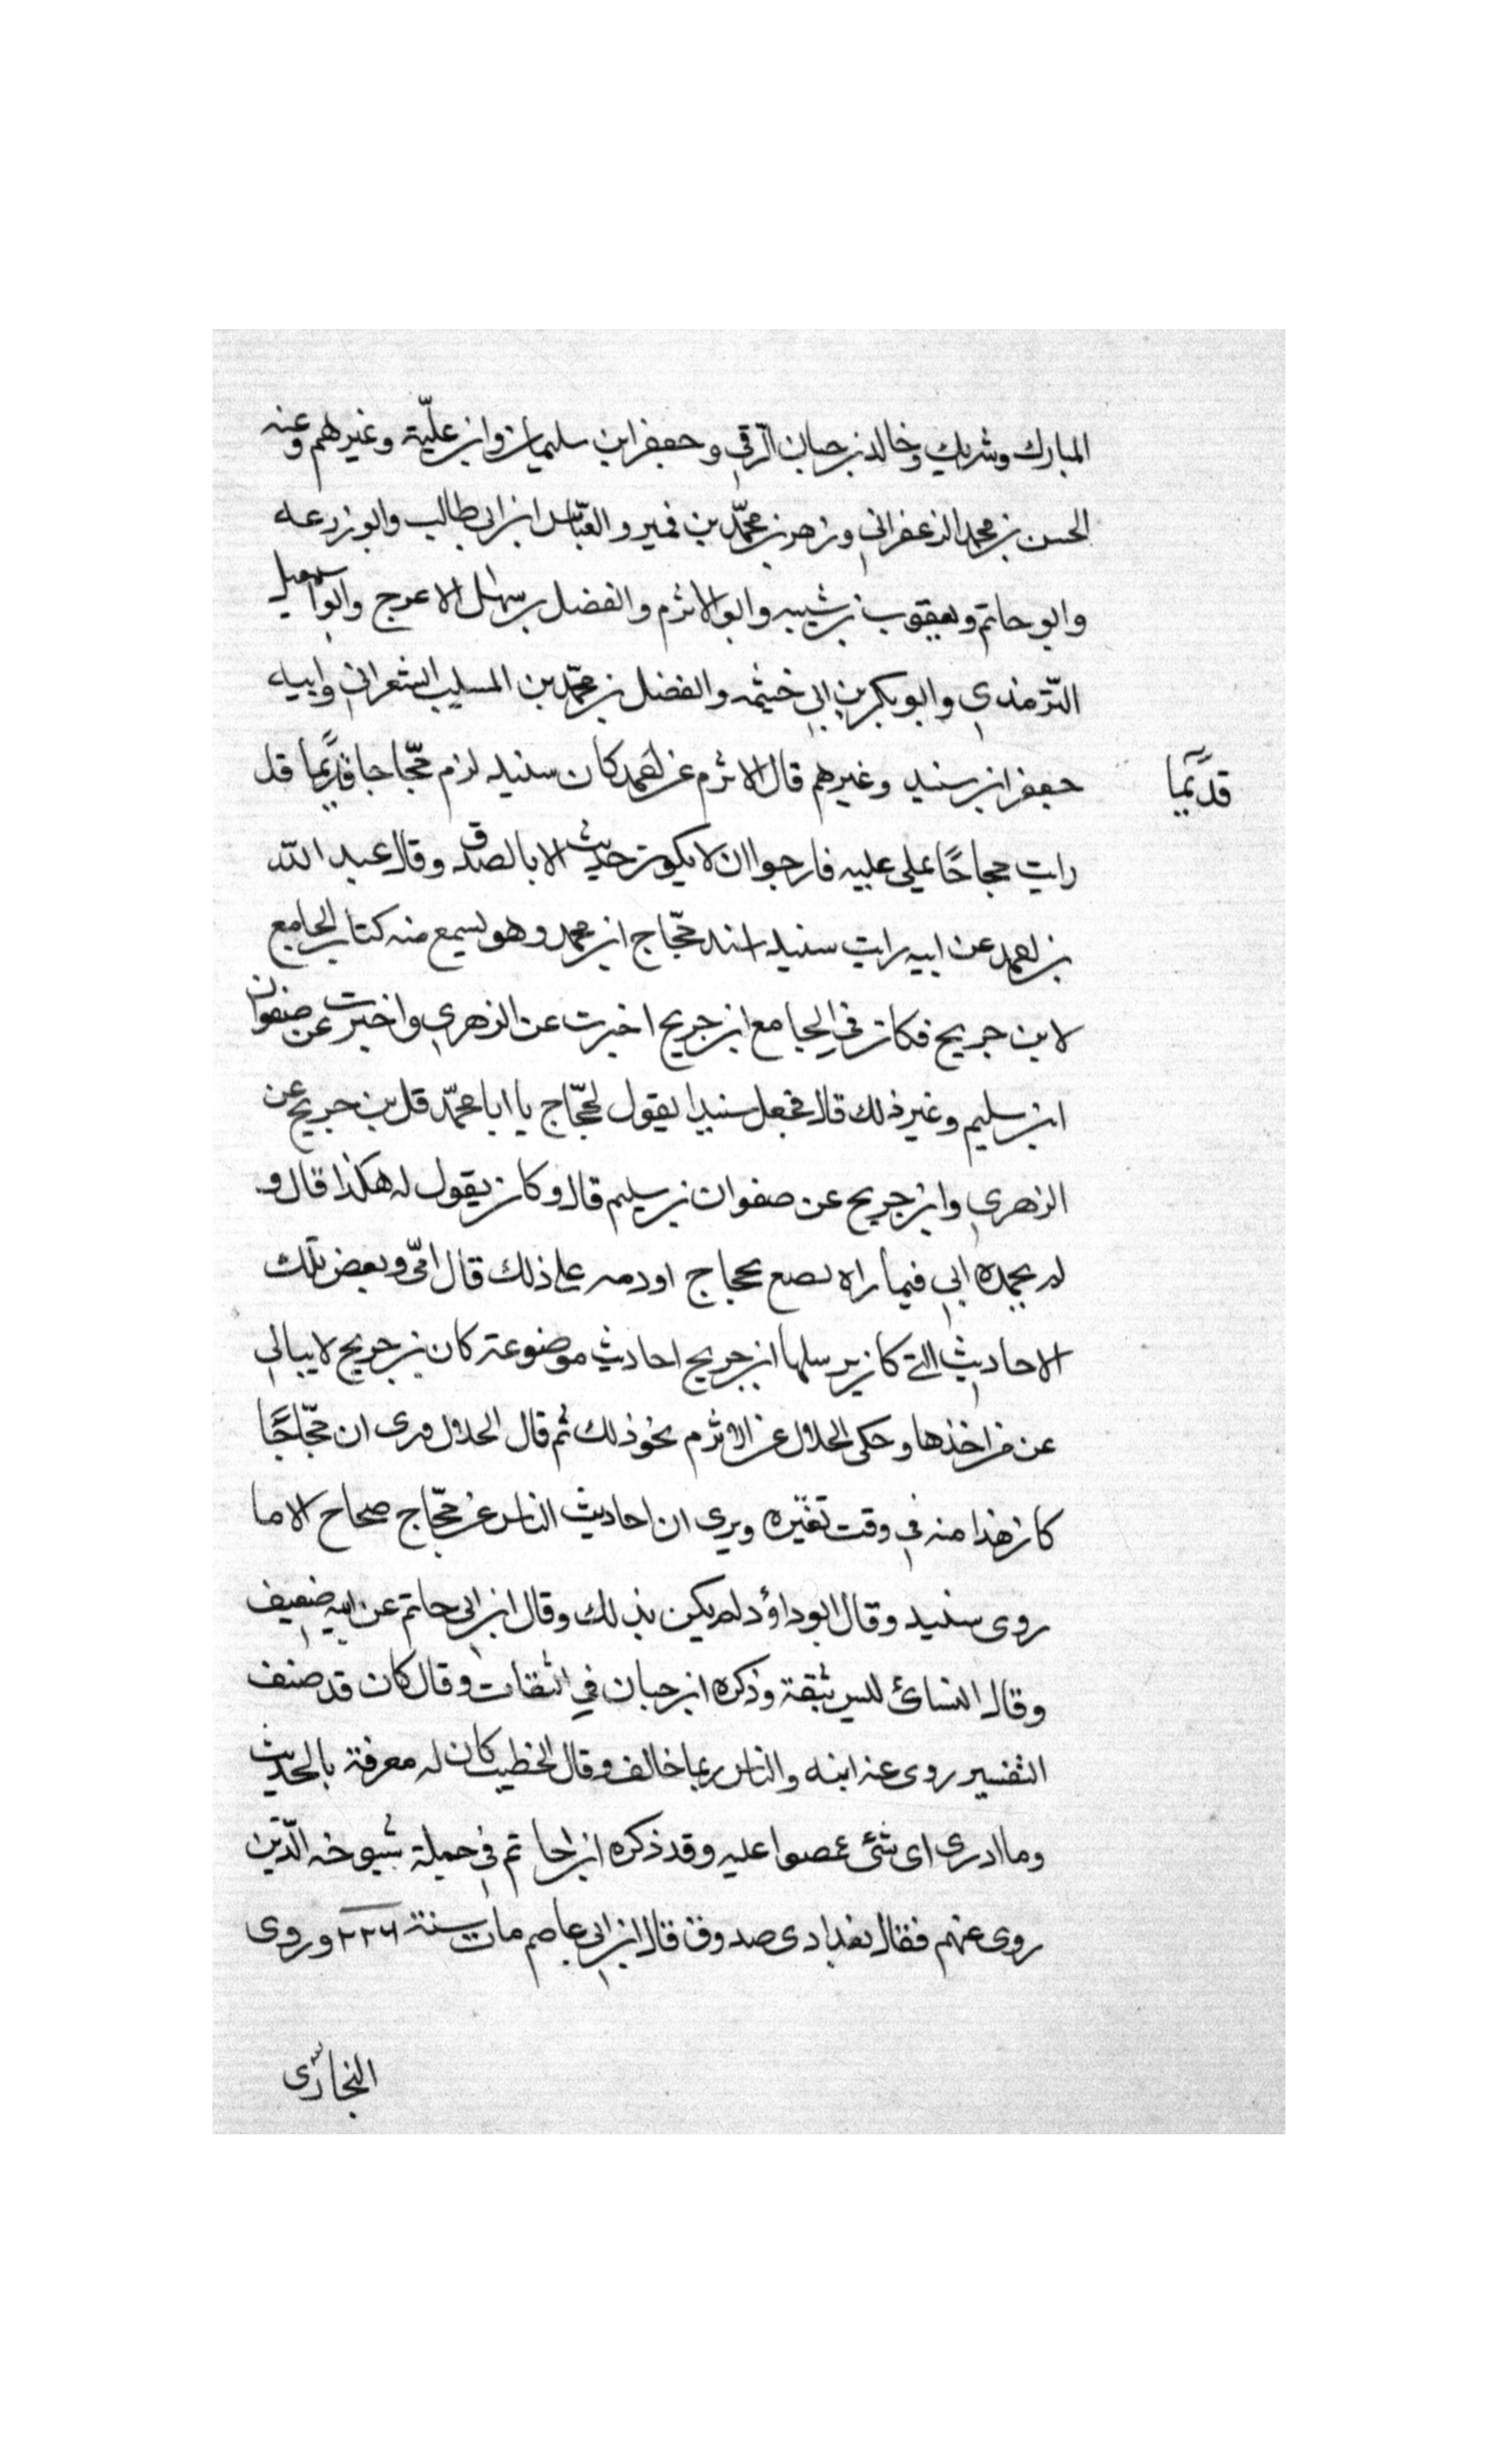 المبارك وشريك وخالد بن حبان الرقي وجعفر ابن سليمان وابن عليّة وغيرهم وعنه
الحسن بن محمد الزعفراني وزهير بن محمّد بن قمير والعبّاس ابن ابي طالب وابو زرعه
وابو حاتم ويعقوب بن شيبه وابو الاثرم والفضل بن سهل الاعرج وابو اسمعيل
التّرمذي وابو بكر بن ابي خيثمه والفضل بن محمّد بن المسيب الشعراني وابيه
جعفر ابن سنيد وغيرهم قال الاثرم عن احمد كان سنيد لزم حجّاجا قديمًا قد
قديمًا
رايت حجاجًا يملي عليه فارجوا ان لا يكون حديث الا بالصدق وقال عبد الله
بن احمد عن ابيه رايت سنيد عند حجّاج ابن محمد وهو يسمع منه كتاب الجامع
لابن جريج فكان في الجامع ابن جريج اخبرت عن الزهري واخبرت عن صفوان
ابن سليم وغير ذلك قال فجعل سنيدا يقول لحجّاج يا ابا محمّد قل بن جريج عن
الزهري وابن جريج عن صفوان بن سليم قال وكان يقول له هكذا قال و
لم يحمده ابي فيما راه يصنع بحجاج وذمه على ذلك قال ابي وبعض تلك
الاحاديث التي كان يرسلها ابن جريج احاديث موضوعة كان بن جريج لا يبالي
عن من اخذها وحكى الخلال عن الاثرم نحو ذلك ثم قال الخلال ونرى ان حجّاجًا
كان هذا منه في وقت تغيّره ويرى ان احاديث الناس عن حجّاج صحاح الا ما
روى سنيد وقال ابو داؤد لم يكن بذلك وقال ابن ابي حاتم عن ابيه ضعيف
وقال النسائ ليس بثقة وذكره ابن حبان في الثقات وقال كان قد صنف
التفسير روى عنه ابنه والناس ربما خالف وقال الخطيب كان له معرفة بالحديث
وما ادرى اى شئ غمصوا عليه وقد ذكره ابو حاتم في جملة شيوخه الّذين
روى عنهم فقال بغدادى صدوق قال ابن ابي عاصم مات سنة ٢٢٦ وروى
البخارى